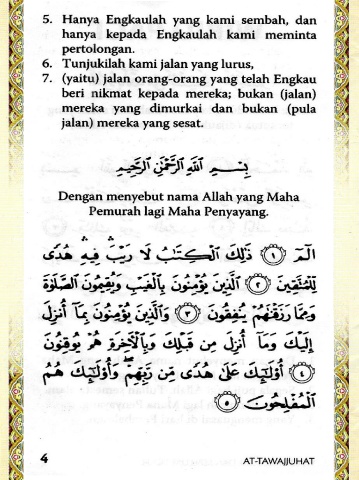 5. Hanya Engkaulah yang kami sembah, dan
hanya kepada Engkaulah kami meminta
pertolongan.
6. Tunjukilah kami jalan yang lurus,
7. (yaitu) jalan orang-orang yang telah Engkau
beri nikmat kepada mereka; bukan (jalan)
mereka yang dimurkai dan bukan (pula
jalan) mereka yang sesat.
بِسْمِ اللَّهِ الرَّحْمَٰنِ الرَّحِيمِ
Dengan menyebut nama Allah yang Maha
Pemurah lagi Maha Penyayang.
الٓمٓ ﴿١﴾ ذَٰلِكَ الْكِتَابُ لَا رَيْبَ ۛ فِيهِ ۛ هُدًى
لِّلْمُتَّقِينَ ﴿٢﴾ الَّذِينَ يُؤْمِنُونَ بِالْغَيْبِ وَيُقِيمُونَ الصَّلَوٰةَ
وَمِمَّا رَزَقْنَاهُمْ يُنفِقُونَ ﴿٣﴾ وَالَّذِينَ يُؤْمِنُونَ بِمَآ أُنزِلَ
إِلَيْكَ وَمَآ أُنزِلَ مِن قَبْلِكَ وَبِالْآخِرَةِ هُمْ يُوقِنُونَ
﴿٤﴾ أُولَٰٓئِكَ عَلَىٰ هُدًى مِّن رَّبِّهِمْ ۖ وَأُولَٰٓئِكَ هُمُ
الْمُفْلِحُونَ ﴿٥﴾
4 AT-TAWAJJUHAT